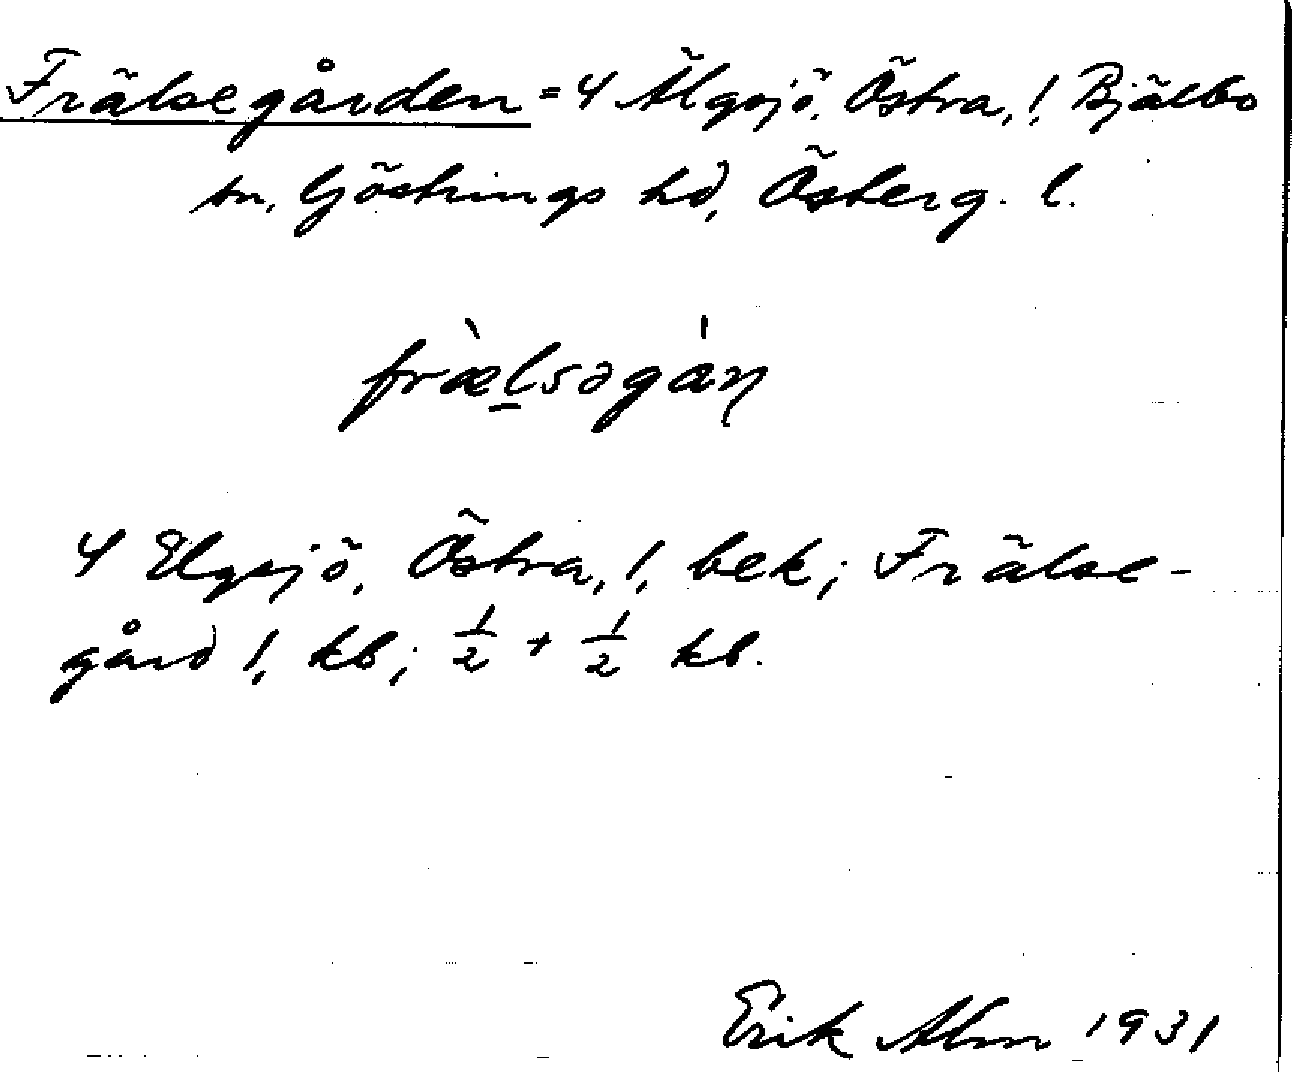 Frälsegården = 4 Älgsjö, Östra, 1, Bjälbo
sn, Göstrings hd, Österg. l.
fræ̀l̠səgán
4 Elgsjö, Östra, 1, bek; Frälse-
gård 1, kb; 1/2 + 1/2 kb.
Erik Alm 1931